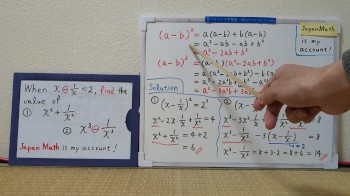 When x - 1/x = 2, find the
value of
① x² + 1/x²
② x³ - 1/x³
Japan Math is my account!
(a-b)² = a(a-b) + b(a-b)
= a² - ab - ab + b²
= a² - 2ab + b²
(a-b)³ = (a-b)(a² - 2ab + b²)
Japan Math
is my
account!
Solution
① (x - 1/x)² = 2²
x² - 2x · 1/x + 1/x² = 4
x² + 1/x² = 4 + 2
= 6
= 8
x³ - 1/x³ - 3(x - 1/x) = 8
= 2
x³ - 1/x³ = 8 + 3 · 2 = 8 + 6 = 14